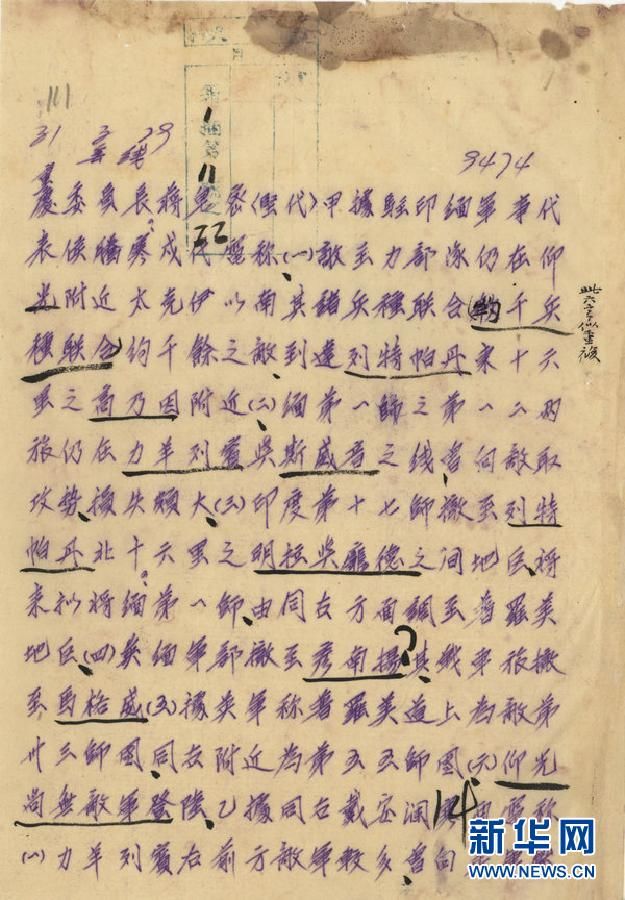 111
31 3 29
9474
慶委員長蔣鈞密(俚代)甲據駐印緬軍事代
表侯騰寒戌代電称(一)敵主力部隊仍在仰
光附近太克伊以南其諸兵種联合(約千兵
種联合)約千餘之敵到達列特帕丹東十六
里之高乃因附近(二)緬第一師之第一二两
旅仍在力羊列賓吳斯威吾之线曾向敵取
攻勢損失頗大(三)印度第十七師撤至列特
帕丹北十六里之明拉吳龐德之间地区將
來拟将緬第一師由同古方面調至普羅美
地区(四)英緬軍部撤至彥南揚其戰車旅撤
至馬格威(五)據英軍称普羅美道上為敵第
卅三師團同古附近為第五五師團(六)仰光
尚無敵軍登陸乙據同古戴安澜 电称
(一)力羊列賓右前方敵軍数多曾向
此六字似重複
新华网
WWW.NEWS.CN